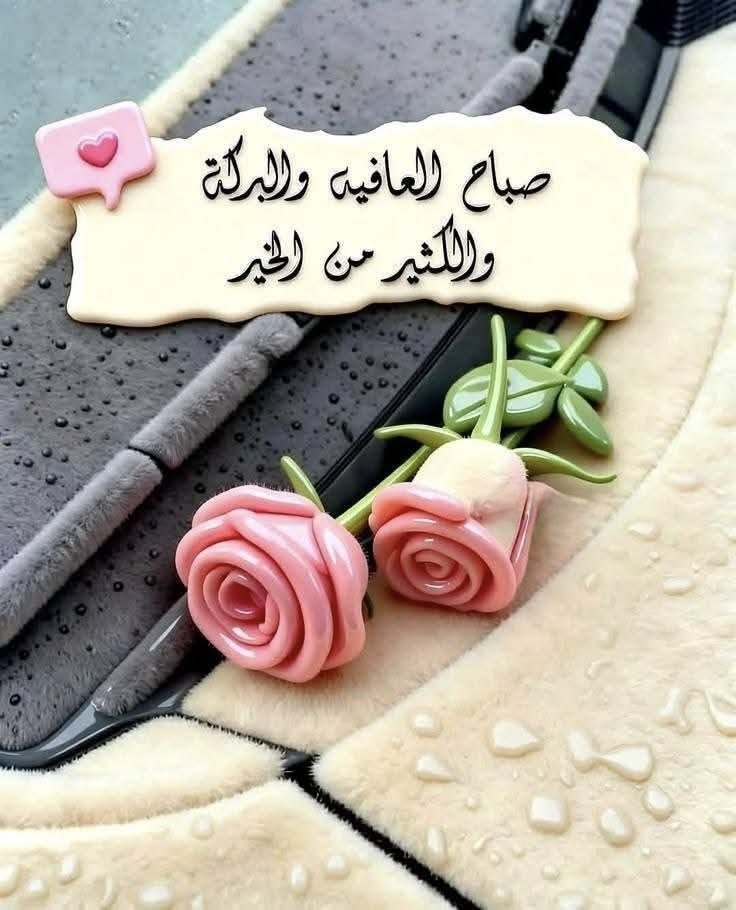 صباح العافيه والبركة
والكثير من الخير